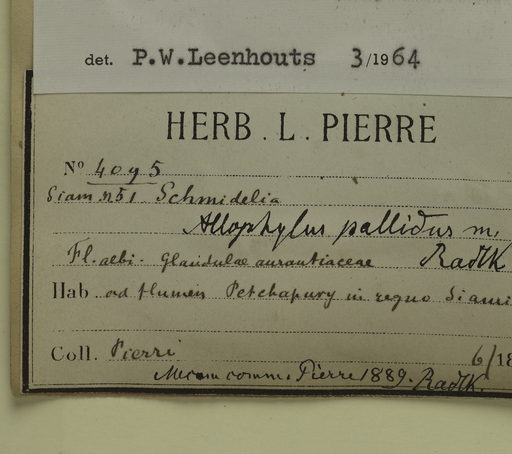 det. P.W.Leenhouts 3/1964
HERB. L. PIERRE
Nº 4095
Siam n 51 Schmidelia
Allophylus pallidus m.
Fl. albi. Glandulae aurantiaceae Radlk
Hab ad flumen Petchapury in regno Siami
Coll. Pierri 6/18
Mecum comm. Pierre 1889. Radlk.